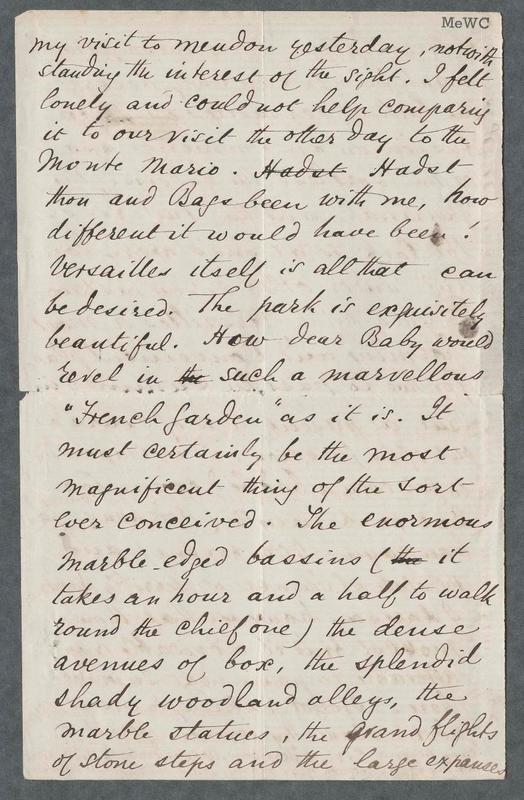 MeWC
my visit to meudon yesterday, notwith
standing the interest of the sight. I felt
lonely and could not help comparing
it to our visit the other day to the
Monte Mario. Hadst Hadst
thou and Bags been with me, how
different it would have been!
Versailles itself is all that can
be desired. The park is exquisitely
beautiful. How dear Baby would
revel in the such a marvellous
"French Garden" as it is. It
must certainly be the most
magnificent thing of the sort
ever conceived. The enormous
marble-edged bassins (the it
takes an hour and a half to walk
round the chief one) the dense
avenues of box, the splendid
shady woodland alleys, the
marble statues, the grand flights
of stone steps and the large expanses